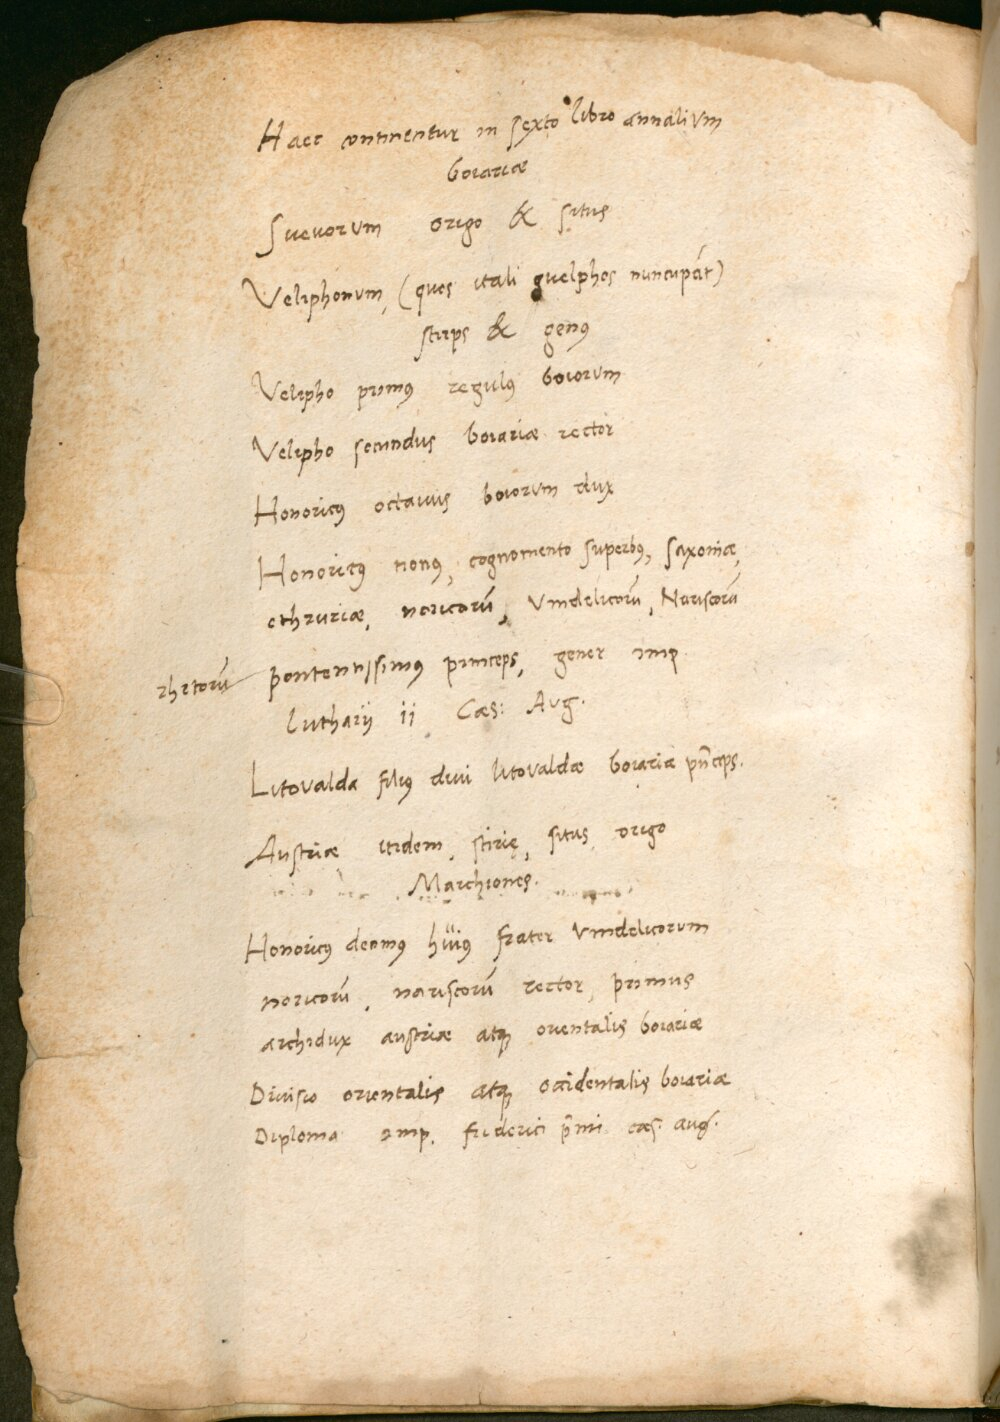 Haec continentur in sexto libro annalium
boiariæ
Suevorum origo & situs
Velphonum, (quos itali guelphos nuncupāt)
stirps & genꝰ
Velpho primꝰ regulꝰ boiorum
Velpho secundus boiariæ rector
Honoricꝰ octauus boiorum dux
Honoricꝰ nonꝰ, cognomento superbꝰ, saxoniæ,
ethruriæ, noricorū, Vindelicorū, Nariscorū
rhetorū potentissimꝰ princeps, gener imp
Lutharij ii Cæs: Aug.
Litovalda filiꝰ divi litovaldæ boiariæ pñceps.
Austriæ itidem, stirię, situs, origo
Marchiones.
Honoricꝰ decimꝰ huiꝰ frater Vindelicorum
noricorū, nariscorū rector, primus
archidux austriæ atqꝫ orientalis boiariæ
Divisio orientalis atqꝫ occidentalis boiariæ
Diploma imp. friderici p̄mi cæs. aug.